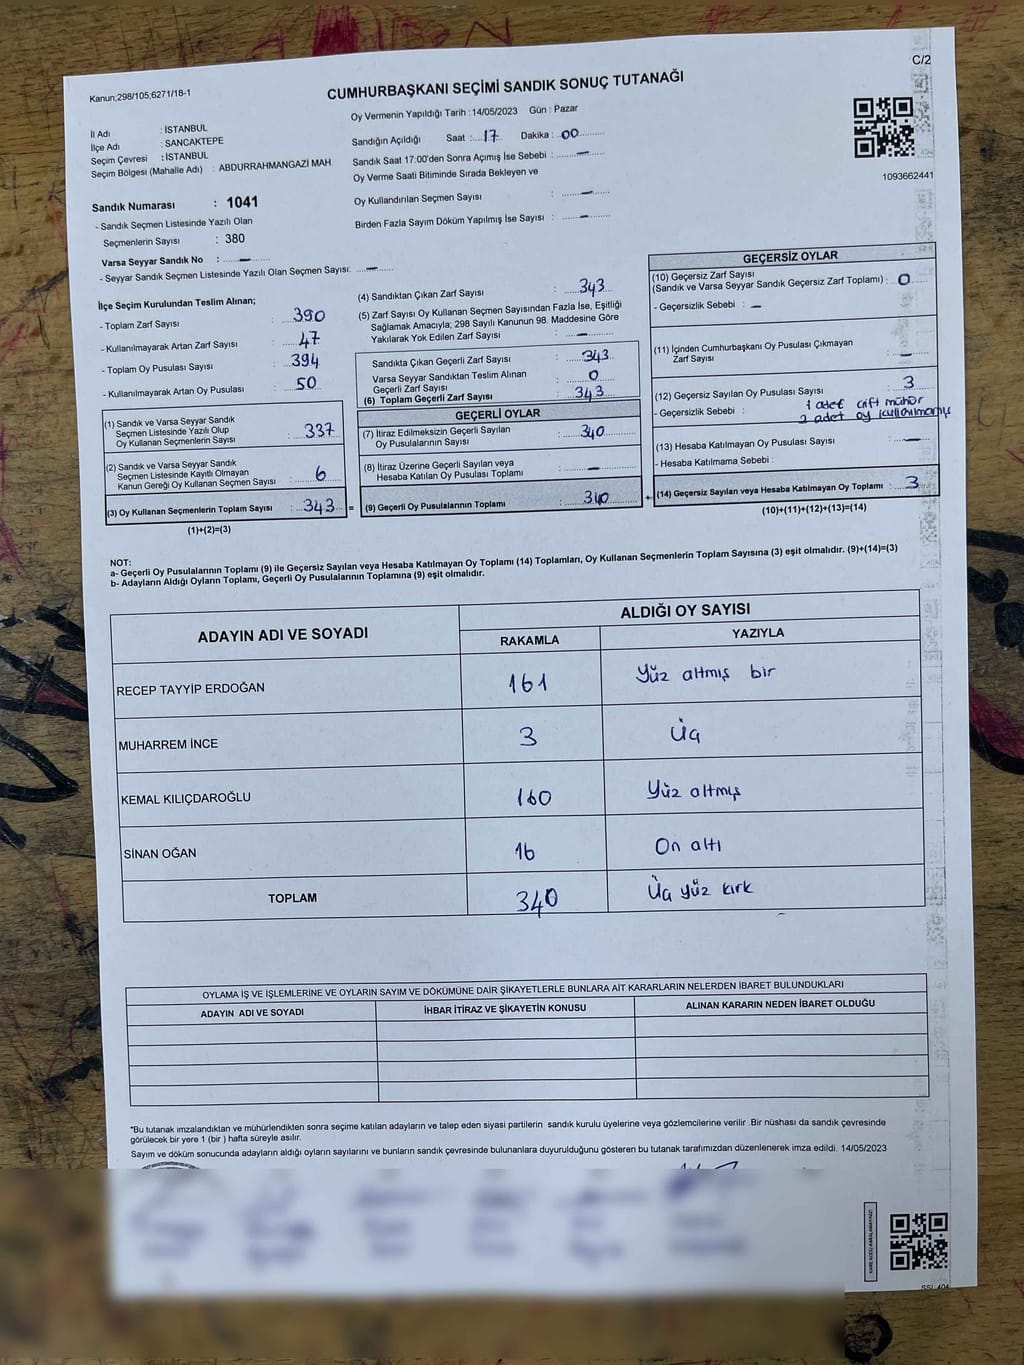 C/2
Kanun;298/105;6271/18-1
CUMHURBAŞKANI SEÇİMİ SANDIK SONUÇ TUTANAĞI
Oy Vermenin Yapıldığı Tarih :14/05/2023 Gün : Pazar
İl Adı : İSTANBUL
İlçe Adı : SANCAKTEPE
Seçim Çevresi : İSTANBUL
Seçim Bölgesi (Mahalle Adı) : ABDURRAHMANGAZİ MAH.
Sandık Numarası : 1041
- Sandık Seçmen Listesinde Yazılı Olan
Seçmenlerin Sayısı : 380
Varsa Seyyar Sandık No : —
- Seyyar Sandık Seçmen Listesinde Yazılı Olan Seçmen Sayısı: —
Sandığın Açıldığı Saat : 17 Dakika : 00
Sandık Saat 17:00'den Sonra Açımış İse Sebebi : —
Oy Verme Saati Bitiminde Sırada Bekleyen ve
Oy Kullandırılan Seçmen Sayısı : —
Birden Fazla Sayım Döküm Yapılmış İse Sayısı : —
1093662441
İlçe Seçim Kurulundan Teslim Alınan;
- Toplam Zarf Sayısı : 390
- Kullanılmayarak Artan Zarf Sayısı : 47
- Toplam Oy Pusulası Sayısı : 394
- Kullanılmayarak Artan Oy Pusulası : 50
(1) Sandık ve Varsa Seyyar Sandık
Seçmen Listesinde Yazılı Olup
Oy Kullanan Seçmenlerin Sayısı : 337
(2) Sandık ve Varsa Seyyar Sandık
Seçmen Listesinde Kayıtlı Olmayan
Kanun Gereği Oy Kullanan Seçmen Sayısı : 6
(3) Oy Kullanan Seçmenlerin Toplam Sayısı : 343 =
(1)+(2)=(3)
(4) Sandıktan Çıkan Zarf Sayısı : 343
(5) Zarf Sayısı Oy Kullanan Seçmen Sayısından Fazla İse, Eşitliği
Sağlamak Amacıyla, 298 Sayılı Kanunun 98. Maddesine Göre
Yakılarak Yok Edilen Zarf Sayısı : —
Sandıkta Çıkan Geçerli Zarf Sayısı : 343
Varsa Seyyar Sandıktan Teslim Alınan
Geçerli Zarf Sayısı : 0
(6) Toplam Geçerli Zarf Sayısı : 343
GEÇERLİ OYLAR
(7) İtiraz Edilmeksizin Geçerli Sayılan
Oy Pusulalarının Sayısı : 340
(8) İtiraz Üzerine Geçerli Sayılan veya
Hesaba Katılan Oy Pusulası Toplamı : —
(9) Geçerli Oy Pusulalarının Toplamı : 340 +
GEÇERSİZ OYLAR
(10) Geçersiz Zarf Sayısı
(Sandık ve Varsa Seyyar Sandık Geçersiz Zarf Toplamı) : 0
- Geçersizlik Sebebi : —
(11) İçinden Cumhurbaşkanı Oy Pusulası Çıkmayan
Zarf Sayısı : —
(12) Geçersiz Sayılan Oy Pusulası Sayısı : 3
- Geçersizlik Sebebi : 1 adet çift mühür
2 adet oy kullanılmamış
(13) Hesaba Katılmayan Oy Pusulası Sayısı : —
- Hesaba Katılmama Sebebi :
(14) Geçersiz Sayılan veya Hesaba Katılmayan Oy Toplamı : 3
(10)+(11)+(12)+(13)=(14)
NOT:
a- Geçerli Oy Pusulalarının Toplamı (9) ile Geçersiz Sayılan veya Hesaba Katılmayan Oy Toplamı (14) Toplamları, Oy Kullanan Seçmenlerin Toplam Sayısına (3) eşit olmalıdır. (9)+(14)=(3)
b- Adayların Aldığı Oyların Toplamı, Geçerli Oy Pusulalarının Toplamına (9) eşit olmalıdır.
ADAYIN ADI VE SOYADI
ALDIĞI OY SAYISI
RAKAMLA YAZIYLA
RECEP TAYYİP ERDOĞAN 161 Yüz altmış bir
MUHARREM İNCE 3 Üç
KEMAL KILIÇDAROĞLU 160 Yüz altmış
SİNAN OĞAN 16 On altı
TOPLAM 340 Üç yüz kırk
OYLAMA İŞ VE İŞLEMLERİNE VE OYLARIN SAYIM VE DÖKÜMÜNE DAİR ŞİKAYETLERLE BUNLARA AİT KARARLARIN NELERDEN İBARET BULUNDUKLARI
ADAYIN ADI VE SOYADI İHBAR İTİRAZ VE ŞİKAYETİN KONUSU ALINAN KARARIN NEDEN İBARET OLDUĞU
*Bu tutanak imzalandıktan ve mühürlendikten sonra seçime katılan adayların ve talep eden siyasi partilerin sandık kurulu üyelerine veya gözlemcilerine verilir .Bir nüshası da sandık çevresinde
görülecek bir yere 1 (bir ) hafta süreyle asılır.
Sayım ve döküm sonucunda adayların aldığı oyların sayılarını ve bunların sandık çevresinde bulunanlara duyurulduğunu gösteren bu tutanak tarafımızdan düzenlenerek imza edildi. 14/05/2023